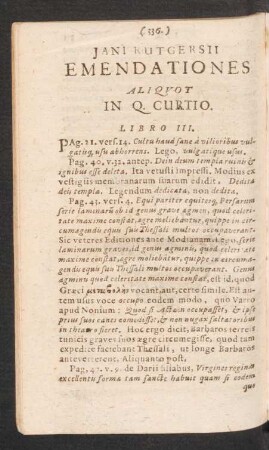 (336.)
JANI RUTGERSII
EMENDATIONES
ALIQVOT
IN Q. CURTIO.
LIBRO III.
PAg. 21. vers. 14. Cultu haud sane à vilioribus vul-
gatiq, usu abhorrens. Lego, vulgatique usus.
Pag. 40. v. 12. antep. Dein deum templa ruinis &
ignibus esse deleta. Ita vetusti impressi. Modius ex
vestigiis membranarum suarum edidit. Dedita
deis templa. Legendum dedicata, non dedita.
Pag. 45. vers. 4. Equi pariter equiteq, Persarum
serie laminarum ob id genus grave agmen, quod celeri-
tate maxime constat, ægre moliebatur, quippe in cir-
cumagendis equis suis Thessali multos occupaverant.
Sic veteres Editiones ante Modianam. Lego, serie
laminarum graves, agmen ob id genus, quod celeri tate
maxime constat, ægre moliebatur, quippe
equis suis Thessali multos occupaverant. Genus
agminis quod celeritate maxime constat, est id, quod
Græci vocant, aut, certe simile. Est au-
tem usus voce occupo eodem modo, quo Varro
apud Nonium: Quod si Actæon occupasset, & ipse
prius suos canes comedisset, & non nugax saltatoribus
in theatro fieret. Hoc ergo dicit, Barbaros ferreis
tunicis graves suos ægre circumegisse, quod tam
expedite factebant Thessali, ut longe Barbaros
anteverterent. Aliquanto post.
Pag. 42. v. 9. de Darii filiabus, Virgines reginas
excellentis forma tam sancte habuit quam si eodem
que